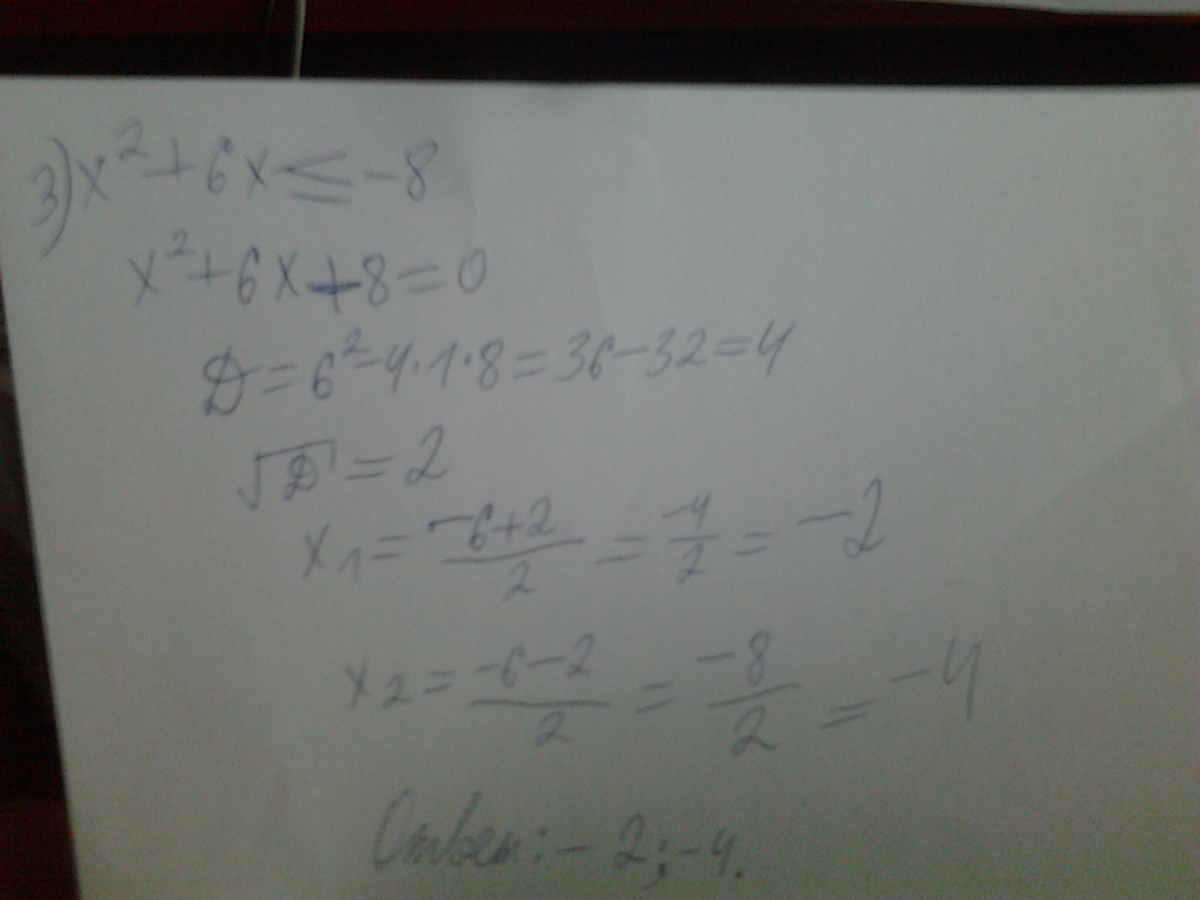 3) x² + 6x ≤ -8
x² + 6x + 8 = 0
D = 6² - 4·1·8 = 36 - 32 = 4
√D = 2
x₁ = (-6+2)/2 = -4/2 = -2
x₂ = (-6-2)/2 = -8/2 = -4
Ответ: -2; -4.